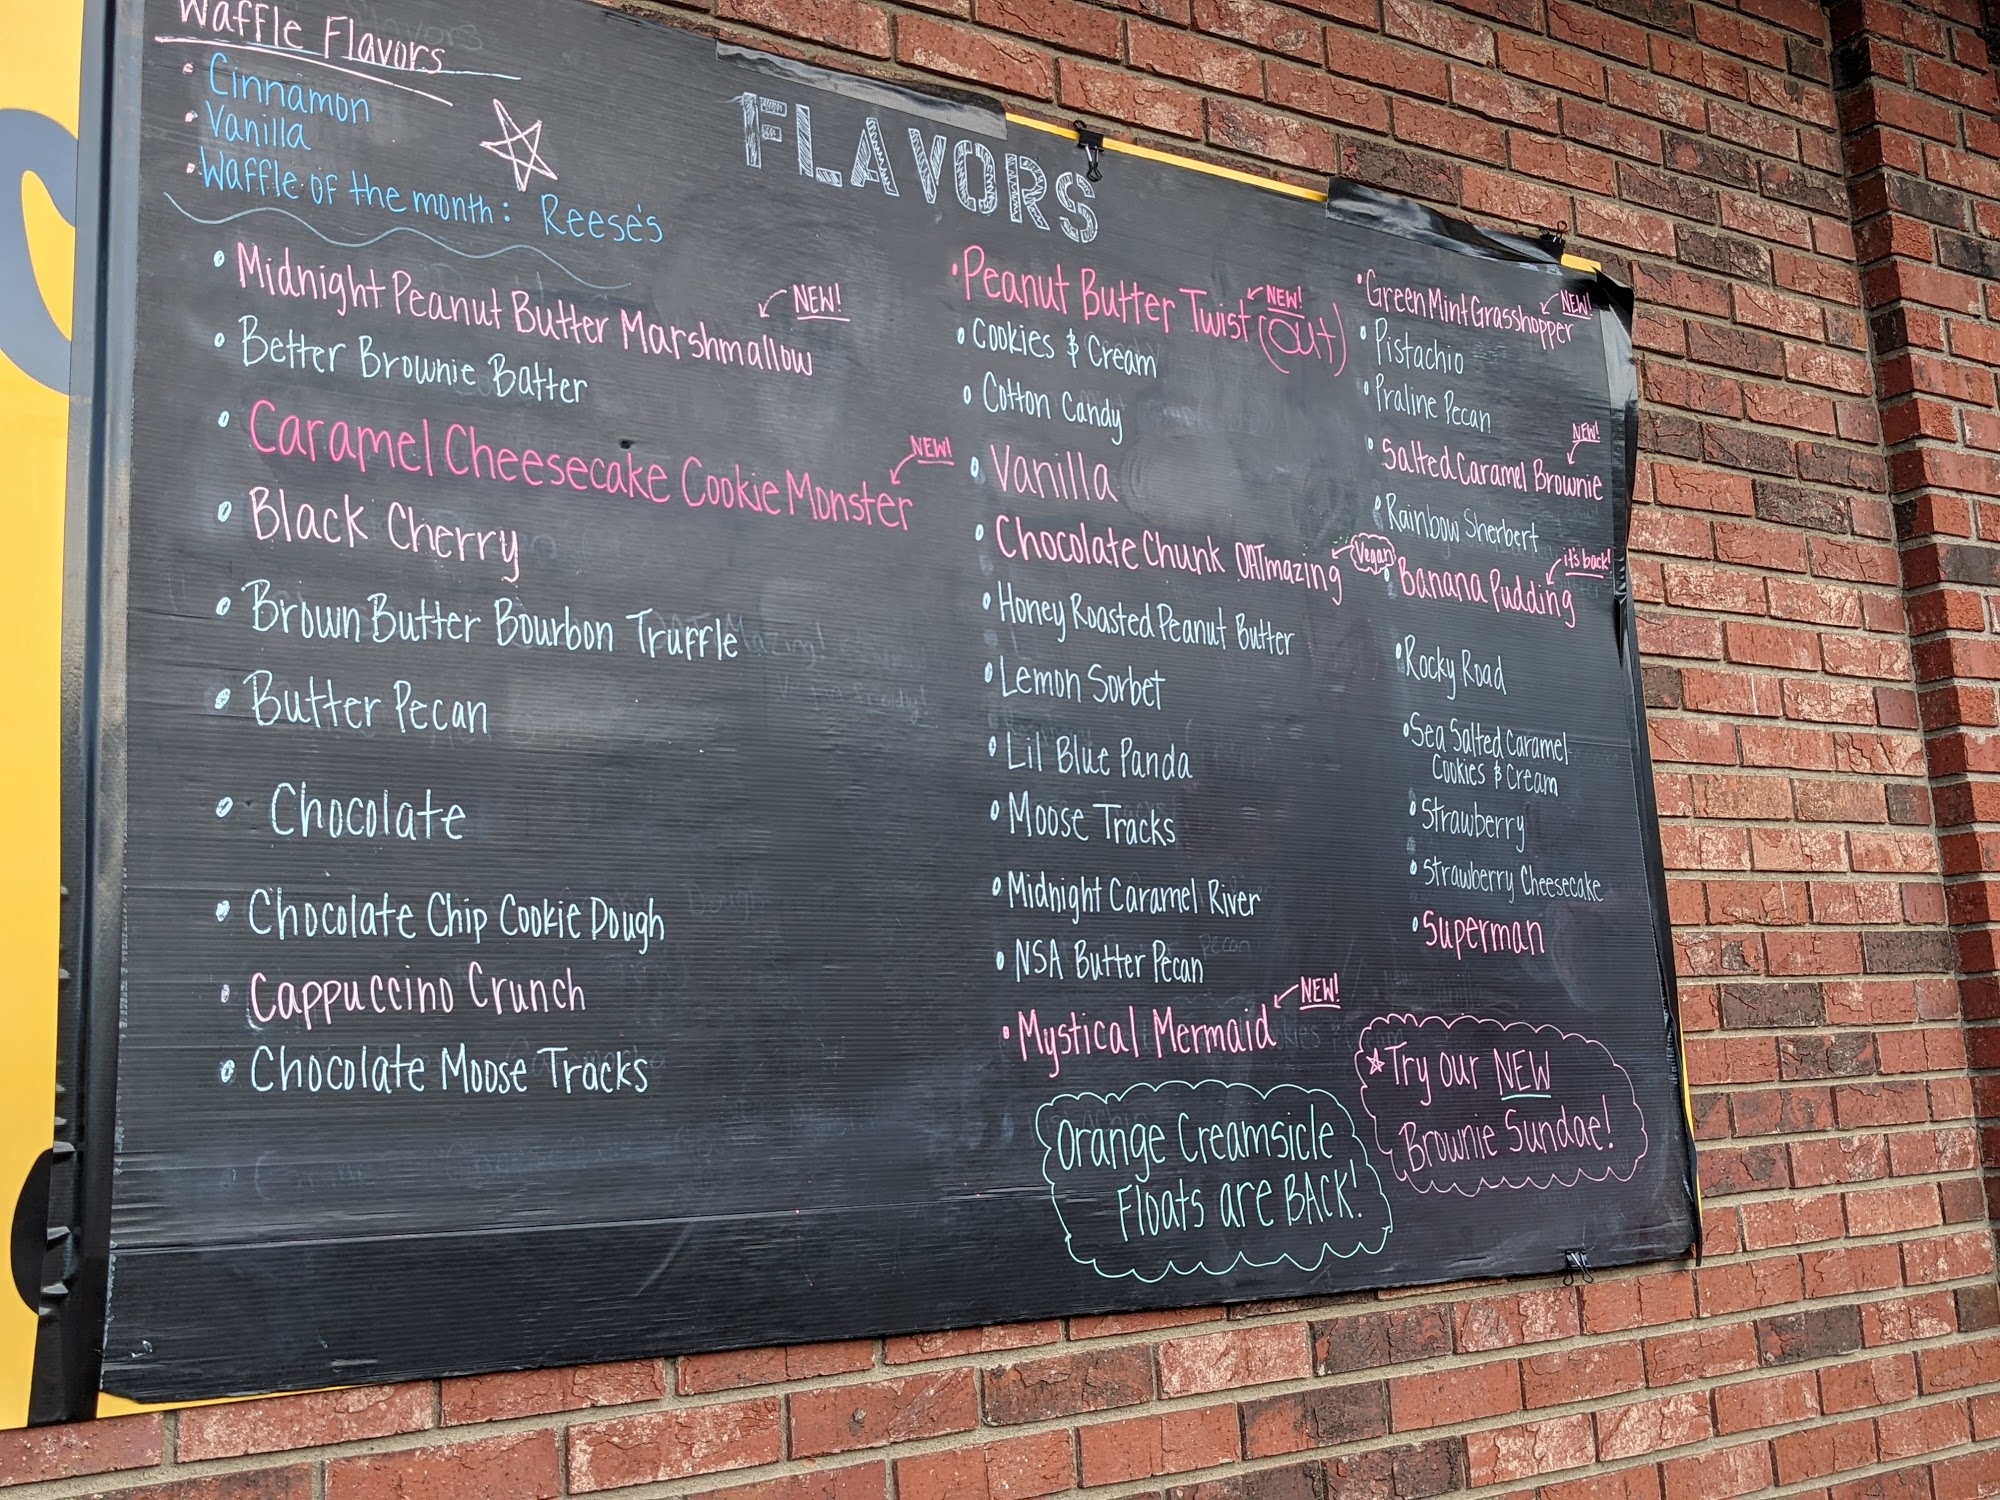 Waffle Flavors
• Cinnamon
• Vanilla
• Waffle of the month: Reese's
FLAVORS
• Midnight Peanut Butter Marshmallow NEW!
• Better Brownie Batter
• Caramel Cheesecake Cookie Monster NEW!
• Black Cherry
• Brown Butter Bourbon Truffle
• Butter Pecan
• Chocolate
• Chocolate Chip Cookie Dough
• Cappuccino Crunch
• Chocolate Moose Tracks
• Peanut Butter Twist NEW! (out)
• Cookies & Cream
• Cotton Candy
• Vanilla
• Chocolate Chunk OATmazing Vegan
• Honey Roasted Peanut Butter
• Lemon Sorbet
• Lil Blue Panda
• Moose Tracks
• Midnight Caramel River
• NSA Butter Pecan
• Mystical Mermaid NEW!
Orange Creamsicle
Floats are BACK!
• Green Mint Grasshopper NEW!
• Pistachio
• Praline Pecan
• Salted Caramel Brownie NEW!
• Rainbow Sherbert
• Banana Pudding it's back!
• Rocky Road
• Sea Salted Caramel
Cookies & Cream
• Strawberry
• Strawberry Cheesecake
• Superman
Try our NEW
Brownie Sundae!